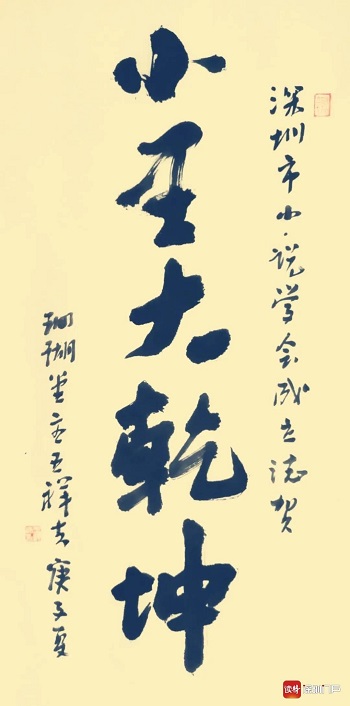 深圳市小说学会成立誌贺
小里大乾坤
珊瑚堂主王祥夫庚子夏
读特 深圳门户